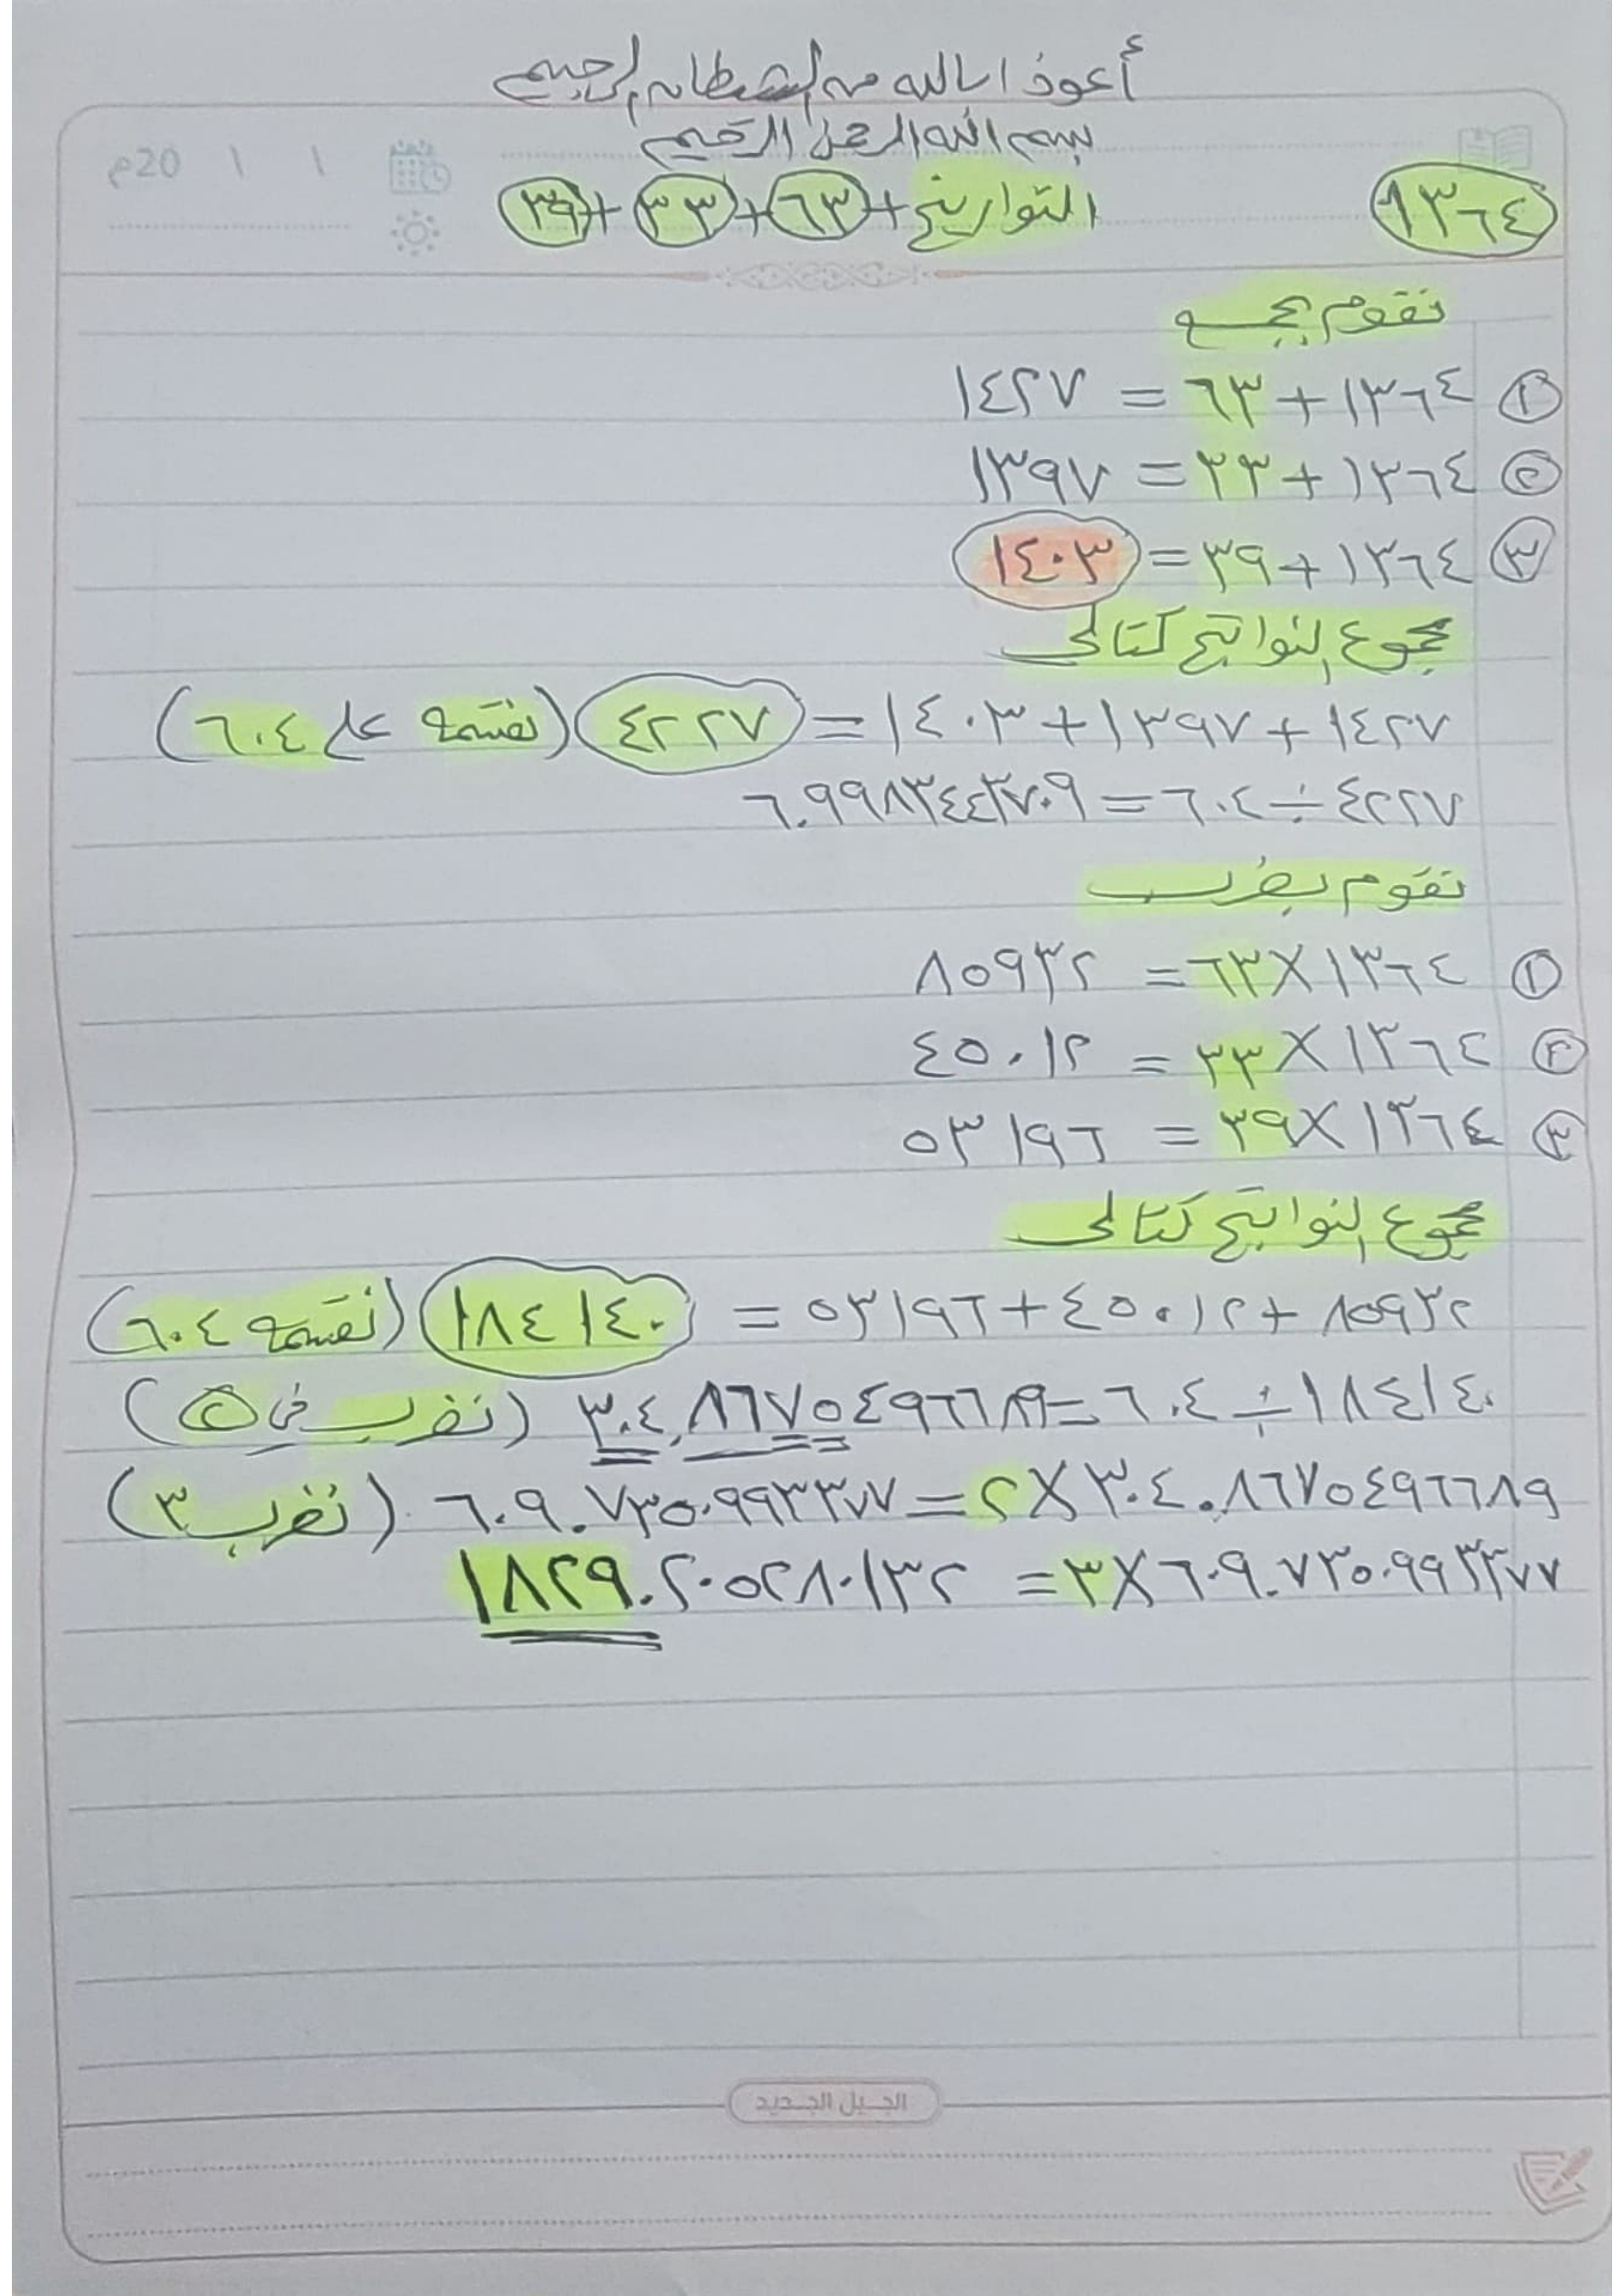 أعوذ بالله من الشيطان الرجيم
بسم الله الرحمن الرحيم
١ ١ 20م
١٣٦٤ التواريخ + ٦٣ + ٣٣ + ٣٩
نقوم بجمع
١ ١٣٦٤ + ٦٣ = ١٤٢٧
٢ ١٣٦٤ + ٣٣ = ١٣٩٧
٣ ١٣٦٤ + ٣٩ = ١٤٠٣
مجموع النواتج كتالي
١٤٢٧ + ١٣٩٧ + ١٤٠٣ = ٤٢٢٧ (نقسمه على ٦٠٤)
٤٢٢٧ ÷ ٦٠٤ = ٦.٩٩٨٣٤٤٣٧٠٩
نقوم بضرب
١ ١٣٦٤ × ٦٣ = ٨٥٩٣٢
٢ ١٣٦٤ × ٣٣ = ٤٥٠١٢
٣ ١٣٦٤ × ٣٩ = ٥٣١٩٦
مجموع النواتج كتالي
٨٥٩٣٢ + ٤٥٠١٢ + ٥٣١٩٦ = ١٨٤١٤٠ (نقسمه ٦٠٤)
١٨٤١٤٠ ÷ ٦٠٤ = ٣٠٤.٨٦٧٥٤٩٦٦٨٩ (نضرب في ٢)
٣٠٤.٨٦٧٥٤٩٦٦٨٩ × ٢ = ٦٠٩.٧٣٥٠٩٩٣٣٧٧ (نضرب ٣)
٦٠٩.٧٣٥٠٩٩٣٣٧٧ × ٣ = ١٨٢٩.٢٠٥٢٨٠١٣٢
الجيل الجديد